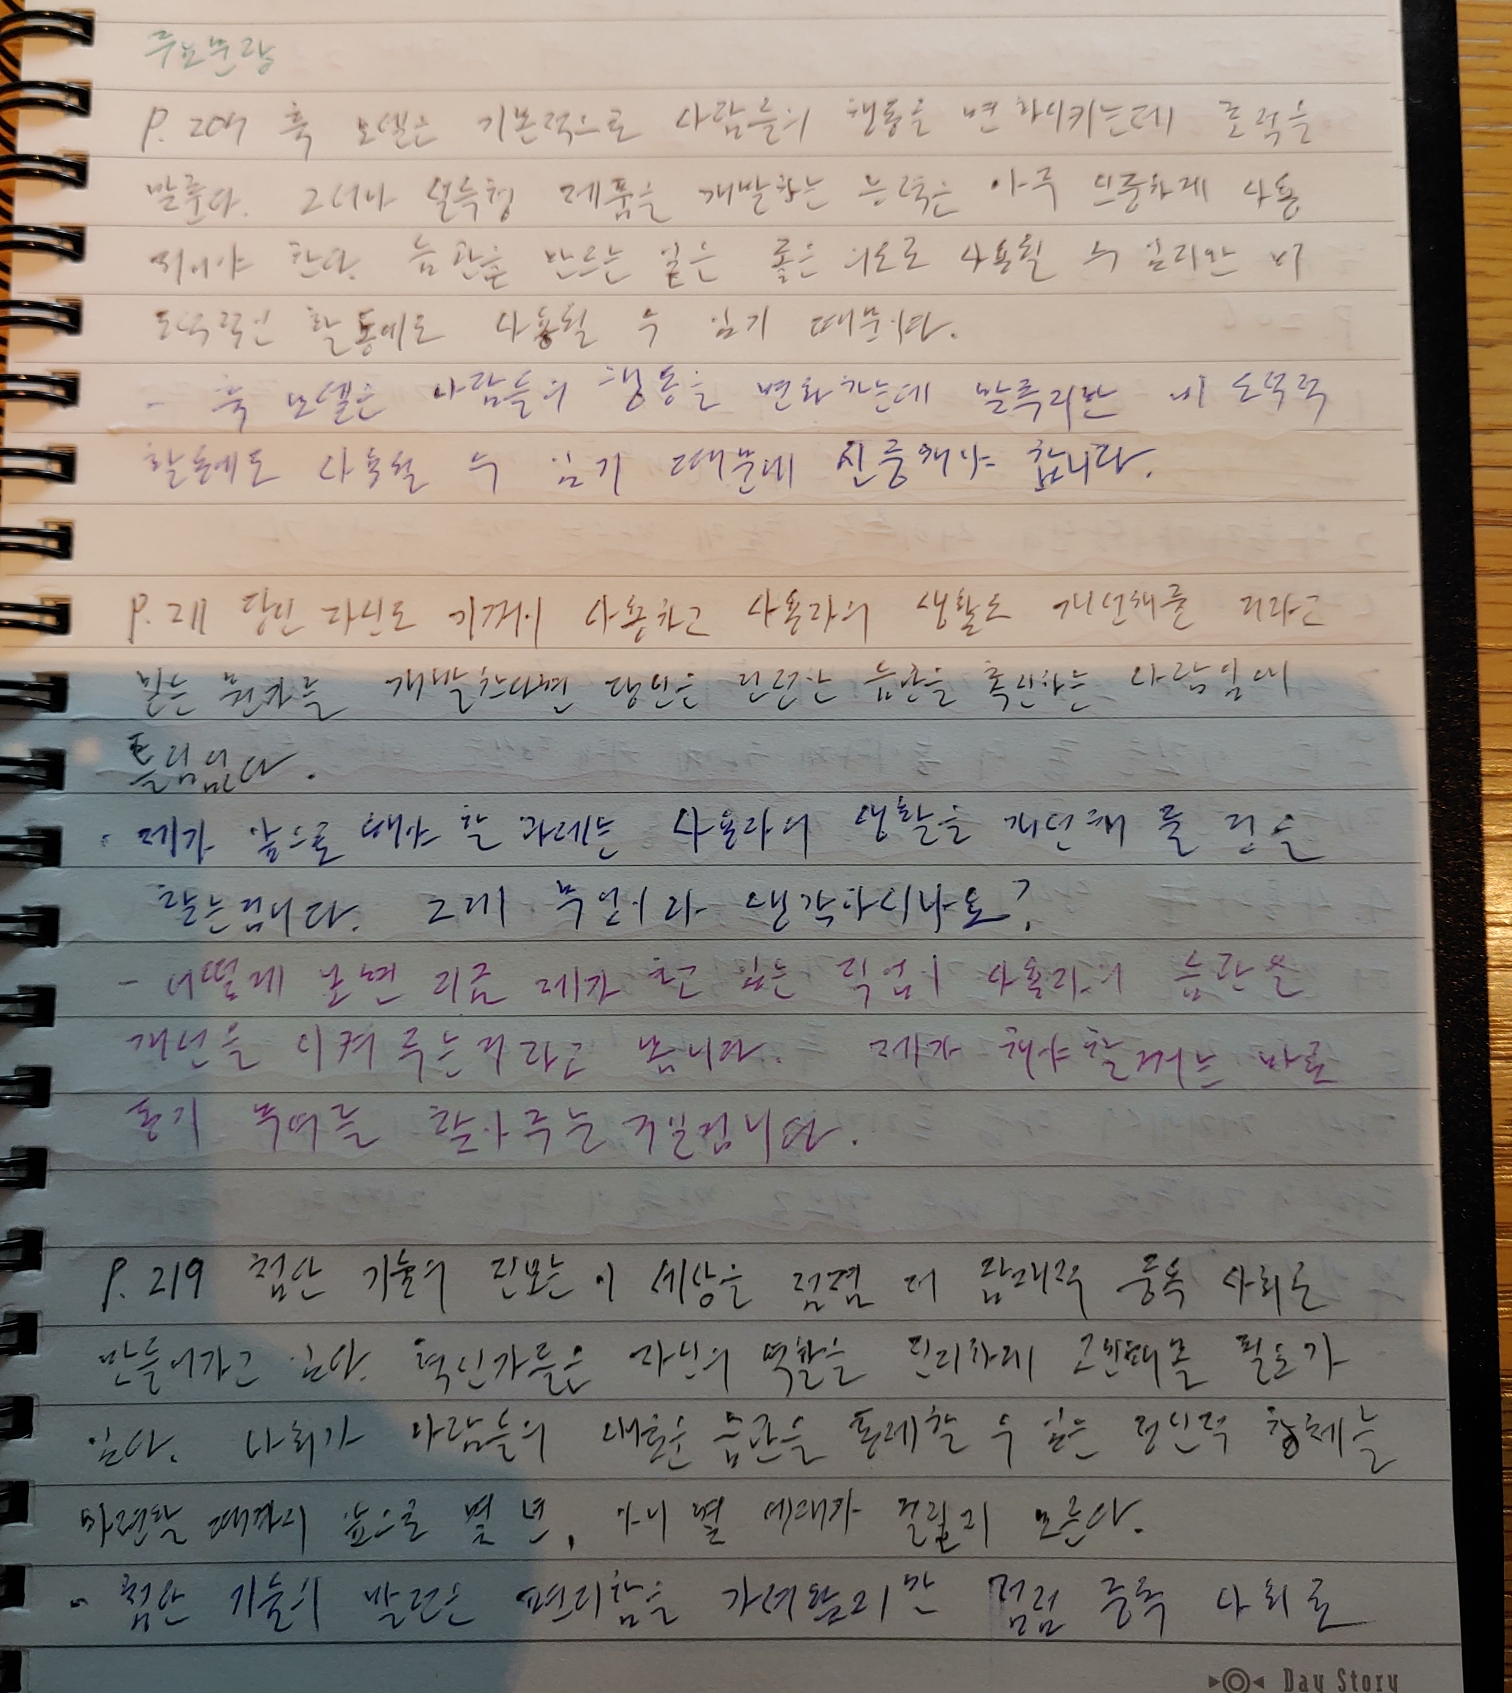 주요문장
p. 207 훅 모델은 기본적으로 사람들의 행동을 변화시키는데 초점을
맞춘다. 그러나 설득형 제품을 개발하는 능력은 아주 신중하게 사용
되어야 한다. 습관을 만드는 일은 좋은 의도로 사용될 수 있지만 비
도덕적인 활동에도 사용될 수 있기 때문이다.
- 훅 모델은 사람들의 행동을 변화하는데 맞추지만 비 도덕적
활동에도 사용될 수 있기 때문에 신중해야 합니다.
p. 211 당신 자신도 기꺼이 사용하고 사용자의 생활도 개선해줄 거라고
믿는 뭔가를 개발한다면 당신은 건전한 습관을 촉진하는 사람임에
틀림없다.
· 제가 앞으로 해야 할 과제는 사용자의 생활을 개선해 줄 것을
찾는겁니다. 그게 무엇이라 생각하시나요?
- 어떻게 보면 지금 제가 하고 있는 직업이 사용자의 습관을
개선을 시켜 주는거라고 봅니다. 제가 해야할꺼는 바로
동기 부여를 찾아주는 거일겁니다.
p. 219 첨단 기술의 진보는 이 세상을 점점 더 잠재적 중독 사회로
만들어가고 있다. 혁신가들은 자신의 역할을 진지하게 고민해볼 필요가
있다. 사회가 사람들의 새로운 습관을 통제할 수 있는 정신적 항체를
마련할 때까지 앞으로 몇 년, 아니 몇 세대가 걸릴지 모른다.
- 첨단 기술의 발전은 편리함을 가져왔지만 점점 중독 사회로
Day Story